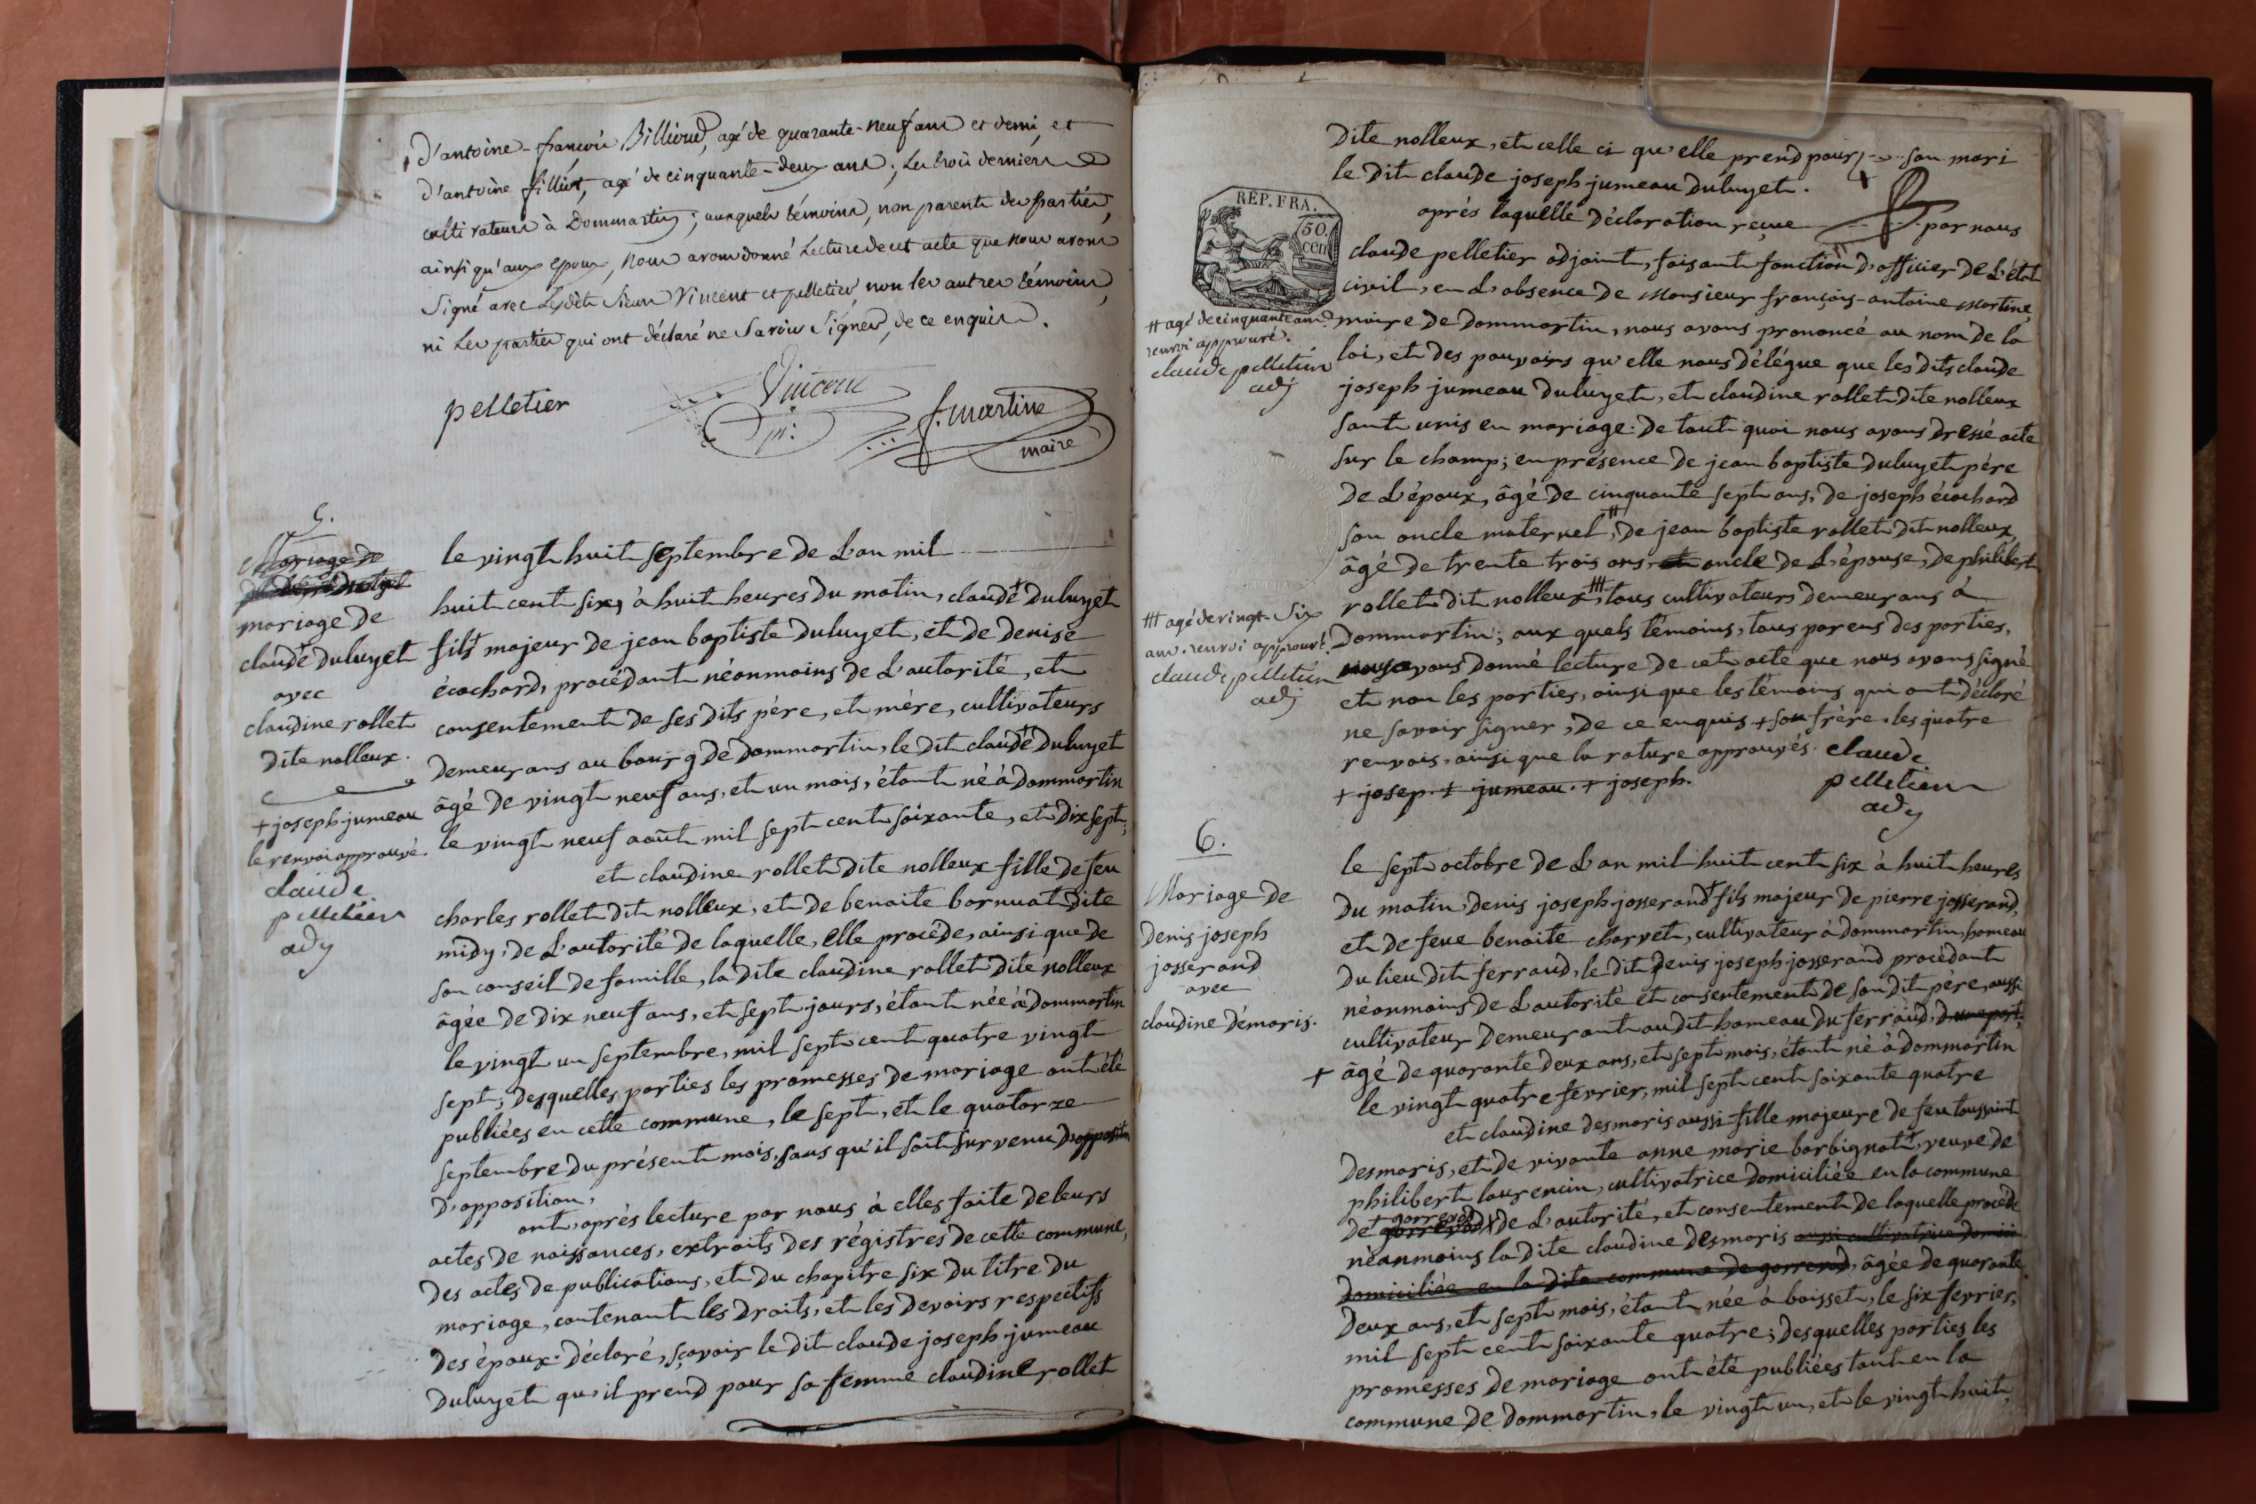 D'antoine-françois Billioud, agé de quarante-neuf ans et demi, et
d'antoine filliot, agé de cinquante-deux ans; les trois derniers
cultivateurs à Dommartin; auxquels témoins, non parents des parties,
ainsi qu'aux epoux, nous avons donné Lecture de cet acte que nous avons
Signé avec Lesdits Sieurs Vincent et pelletier, non les autres témoins,
ni Les parties qui ont déclaré ne Savoir Signer, de ce enquis.
pelletier
Vincent
f. martine
maire
5.
Mariage de
mariage de
claude + duluyet
avec
claudine rollet
dite nolleux.
+ joseph jumeau
le renvoi approuvé.
claude
pelletier
adj
le vingt huit septembre de L'an mil
huit cent six, à huit heures du matin, claude + duluyet
fils majeur de jean baptiste duluyet, et de denise
écochard, procédant néanmoins de L'autorité, et
consentement de ses dits père, et mère, cultivateurs
demeurans au bourg de dommartin, le dit claude + duluyet
âgé de vingt neuf ans, et un mois, étant né à dommartin
le vingt neuf août mil sept cent soixante, et dix sept;
et claudine rollet dite nolleux fille de feu
charles rollet dit nolleux, et de benoite bornuat dite
midy, de L'autorité de laquelle, elle procède, ainsi que de
son conseil de famille, la dite claudine rollet dite nolleux
âgée de dix neuf ans, et sept jours, étant née à dommartin
le vingt un septembre, mil sept cent quatre vingt
sept; desquelles parties les promesses de mariage ont été
publiées en cette commune, le sept, et le quatorze
septembre du présent mois, sans qu'il soit survenu d'opposition
d'opposition,
ont, après lecture par nous à elles faite de leurs
actes de naissances, extraits des régistres de cette commune,
des actes de publications, et du chapitre six du titre du
mariage, contenant les droits, et les devoirs respectifs
des époux. déclaré, sçavoir le dit claude joseph jumeau
duluyet qu'il prend pour sa femme claudine rollet
dite nolleux, et celle ci qu'elle prend pour son mari
le dit claude joseph jumeau duluyet.
après laquelle déclaration reçue par nous
REP. FRA.
50.
cen
claude pelletier adjoint, faisant fonction d'officier de L'état
civil, en L'absence de Monsieur françois-antoine Martine,
maire de dommartin, nous avons prononcé au nom de la
loi, et des pouvoirs qu'elle nous délégue que les dits claude
joseph jumeau duluyet, et claudine rollet dite nolleux
sont unis en mariage. De tout quoi nous avons dressé acte
sur le champ; en présence de jean baptiste duluyet père
de L'époux, âgé de cinquante sept ans, de joseph écochard
son oncle maternel, de jean baptiste rollet dit nolleux,
âgé de trente trois ans, oncle de L'épouse, de philibert
rollet dit nolleux, tous cultivateurs demeurans à
dommartin; aux quels témoins, tous parens des parties,
nous avons donné lecture de cet acte que nous avons signé
et non les parties, ainsi que les témoins qui ont déclaré
ne savoir signer, de ce enquis + son frère. les quatre
renvois, ainsi que la rature approuvés. claude
+ josep. + jumeau. + joseph.
pelletier
adj
# agé de cinquante ans
renvoi approuvé.
claude pelletier
adj
## agé de vingt-Six
ans. renvoi approuvé.
claude pelletier
adj
6.
Mariage de
Denis joseph
josserand
avec
claudine démaris.
le sept octobre de L'an mil huit cent six à huit heures
du matin, denis joseph josserand + fils majeur de pierre josserand,
et de feue benoite charvet, cultivateur à dommartin, hameau
du lieu dit ferraud, le dit denis joseph josserand procédant
néanmoins de L'autorité et consentement de son dit père, aussi
cultivateur demeurant au dit hameau du ferraud, d'une part,
+ âgé de quarante deux ans, et sept mois, étant né à dommartin
le vingt quatre février, mil sept cent soixante quatre
et claudine desmaris aussi fille majeure de feu toussaint
desmaris, et de vivante anne marie barbignat, veuve de
philibert laurencin, cultivatrice domiciliée en la commune
de gorrevod, de L'autorité, et consentement de laquelle procède
néanmoins la dite claudine desmaris aussi cultivatrice domici
domiciliée en la dite commune de gorrevod, âgée de quarante
deux ans, et sept mois, étant née à boisset, le six février,
mil sept cent soixante quatre; desquelles parties les
promesses de mariage ont été publiées tant en la
commune de dommartin, le vingt un, et le vingt huit